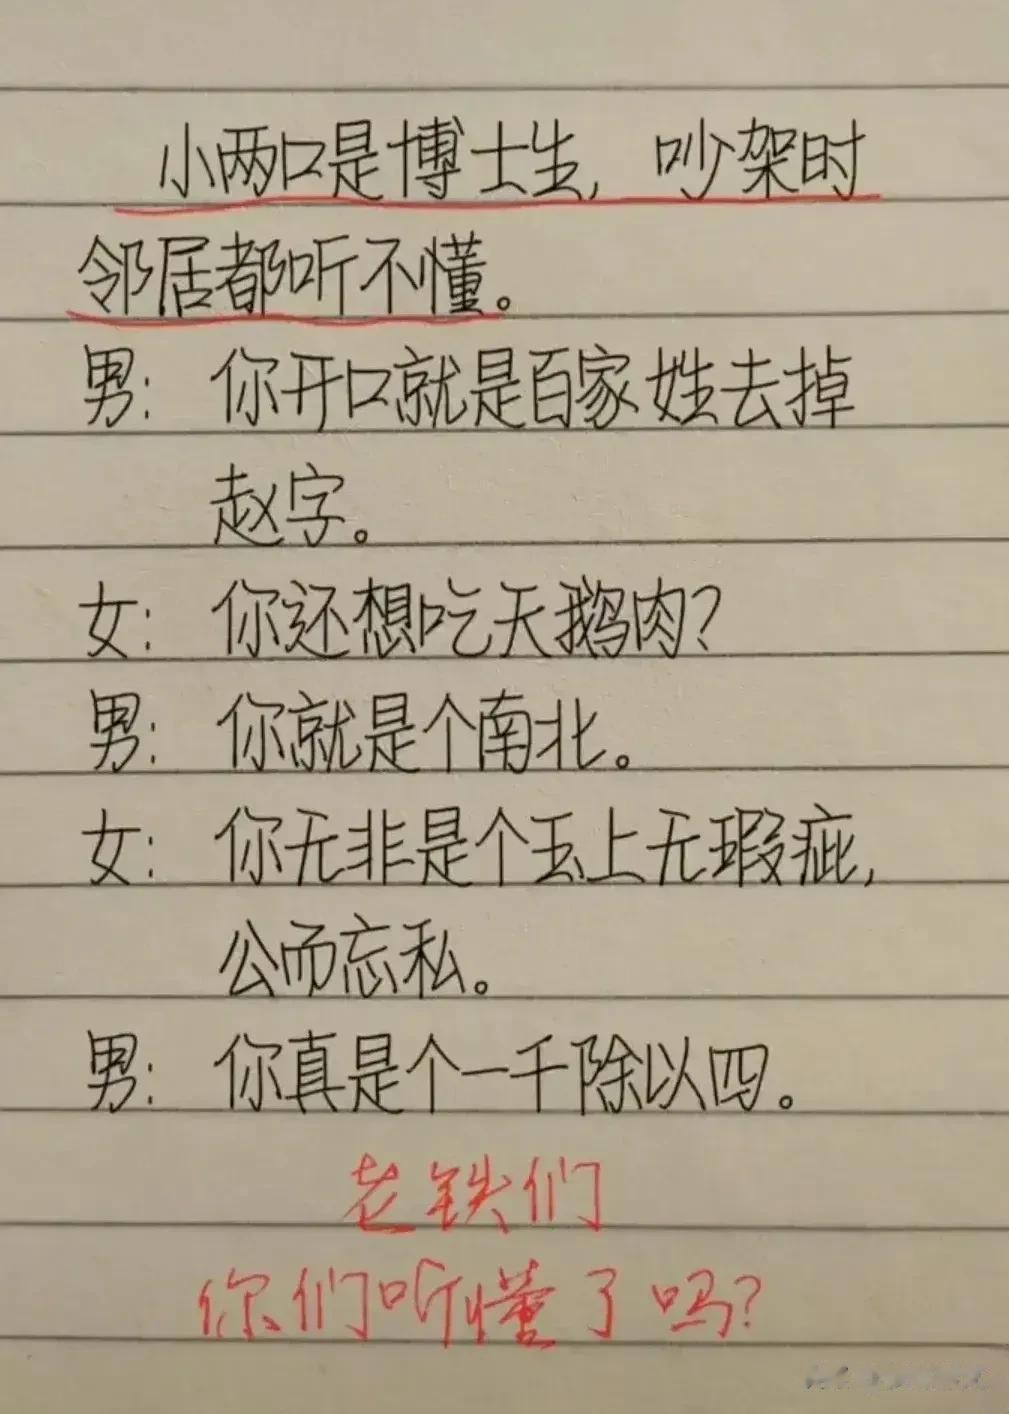 小两口是博士生, 吵架时
邻居都听不懂。
男: 你开口就是百家姓去掉
赵字。
女: 你还想吃天鹅肉?
男: 你就是个南北。
女: 你无非是个玉上无瑕疵,
公而忘私。
男: 你真是个一千除以四。
老铁们
你们听懂了吗?